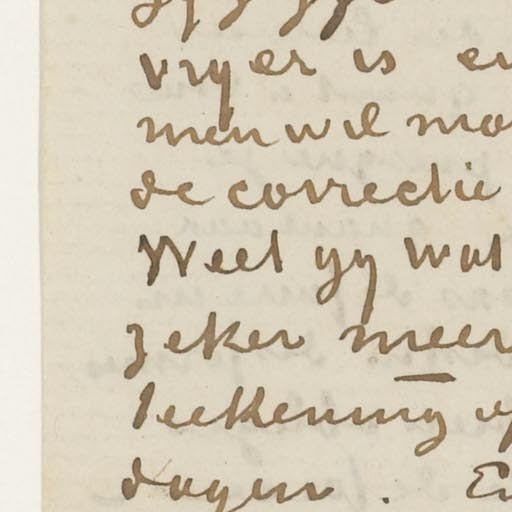 vryer is en
men wil mo
de correctie
Weet gy wat
zeker meer
teekening of
dagen. En